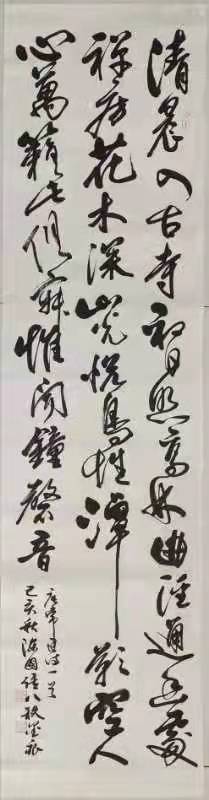 清晨入古寺初日照高林曲徑通幽處
禪房花木深山光悦鳥性潭影空人
心萬籟此俱寂惟闻鐘磬音
唐常建诗一首
己亥秋